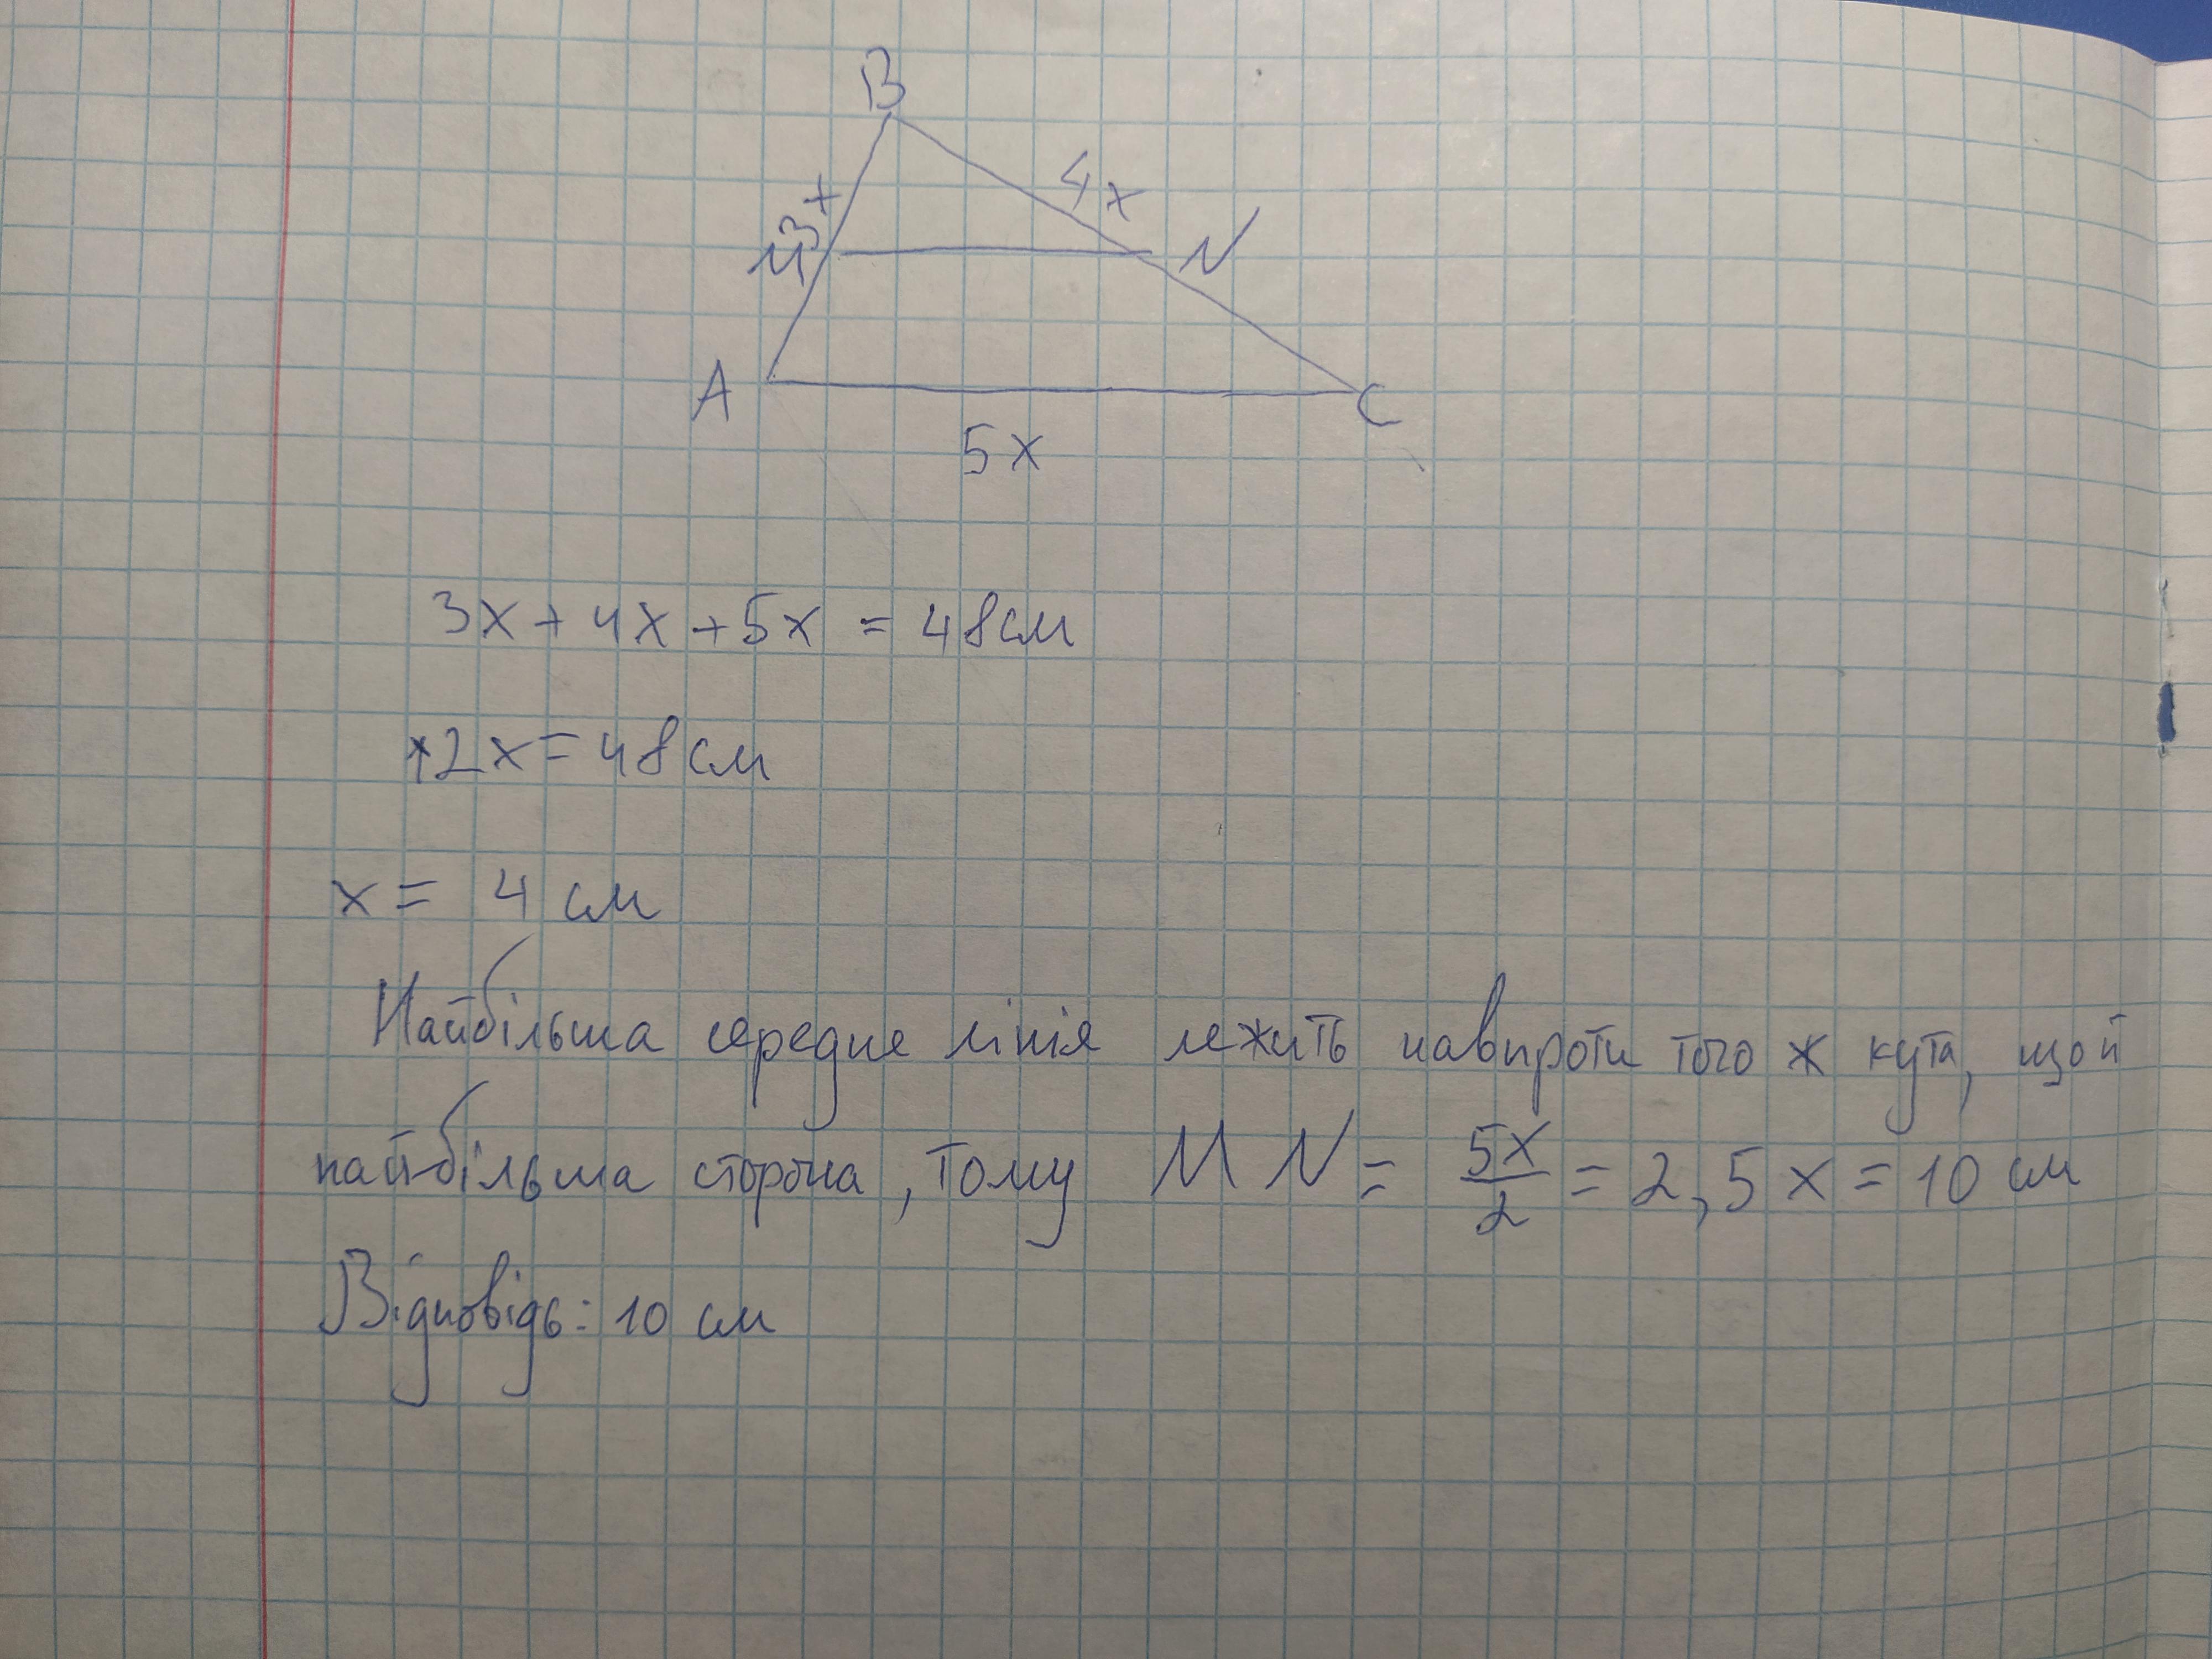 B
3x
4x
M
N
A
C
5x
3x + 4x + 5x = 48 см
12x = 48 см
x = 4 см
Найбільша середнє лінія лежить навпроти того ж кута, що й
найбільша сторона, тому MN = 5x/2 = 2,5x = 10 см
Відповідь: 10 см